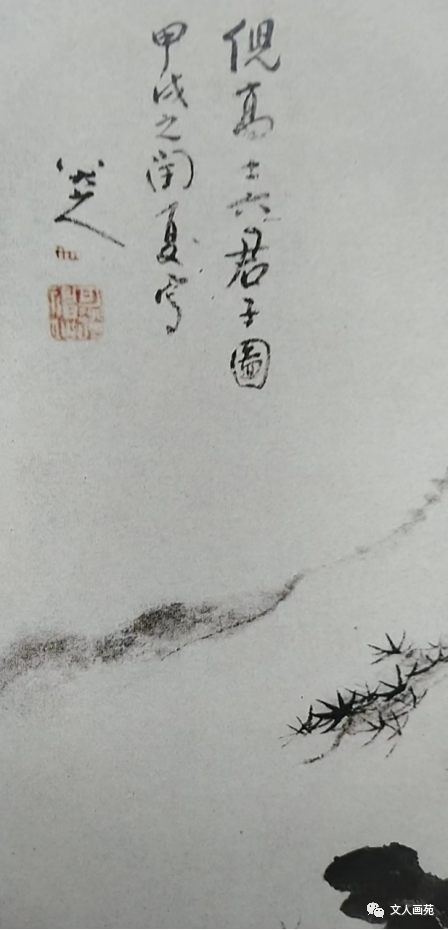 倪高士六君子圖
甲戌之閏夏寫
八大山人
文人画苑